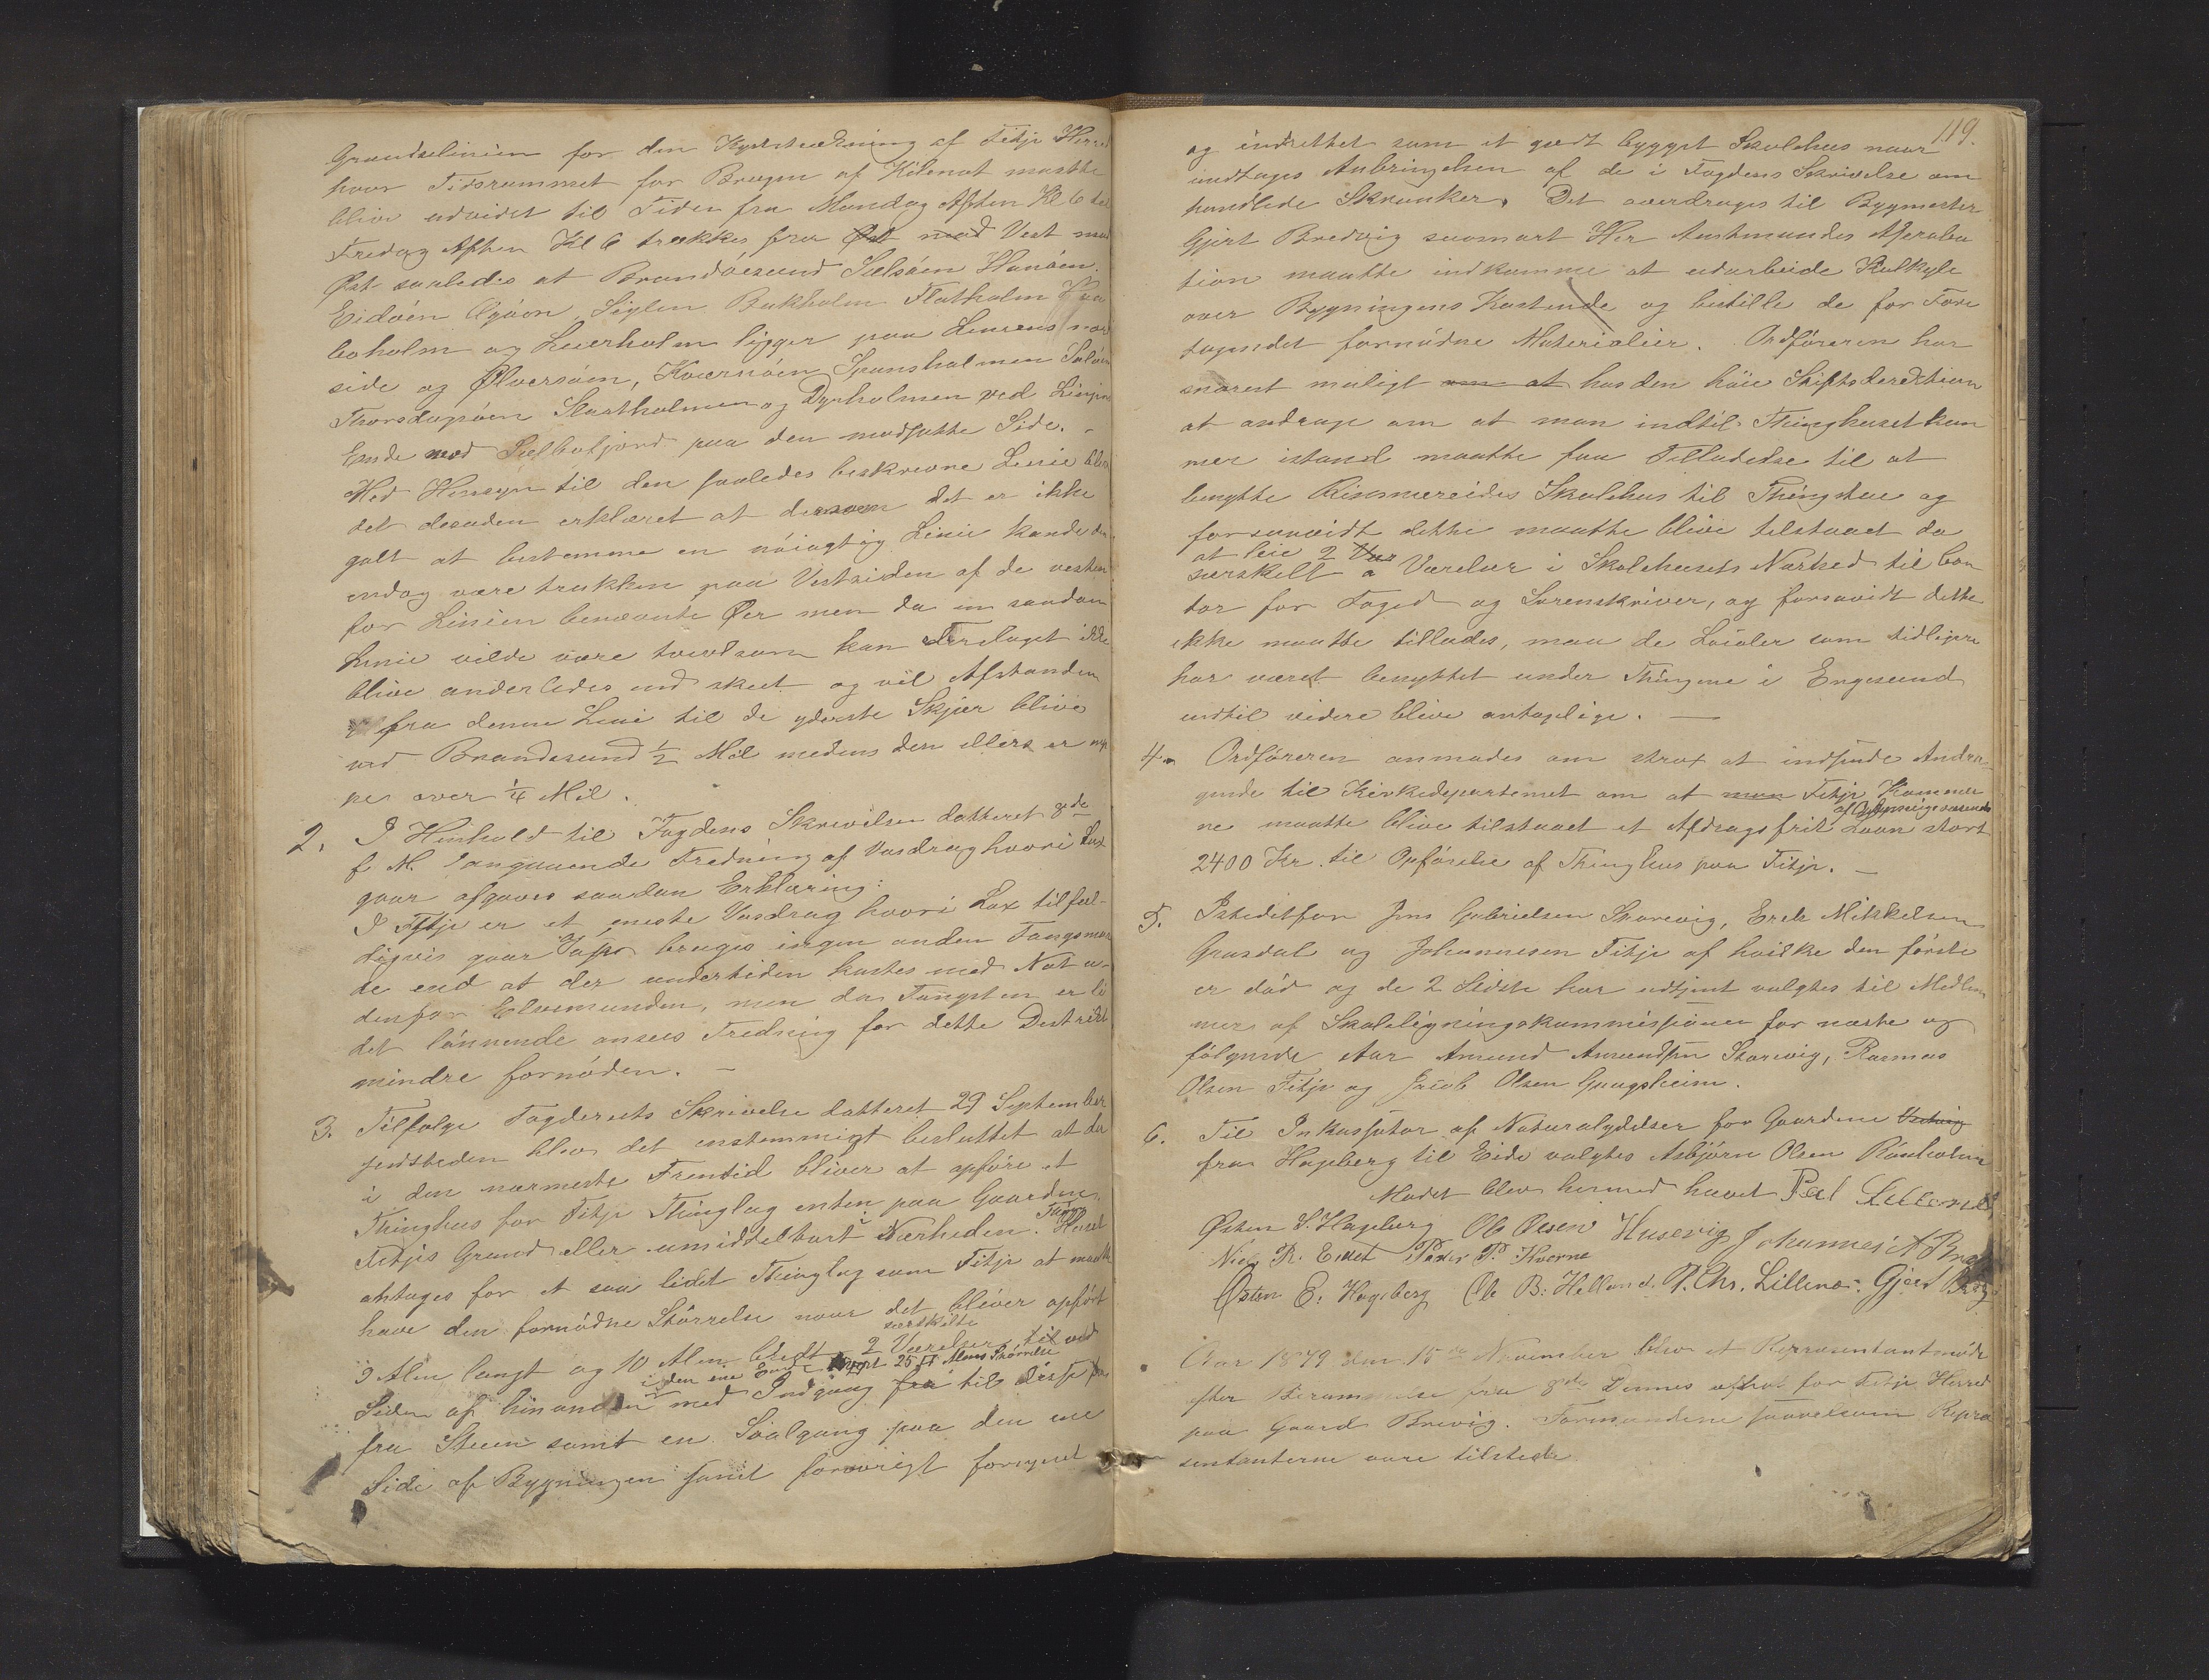 Grændselinien for den Kyststrækning af Fitje Herred
hvor Tidsrummet for Brugen af Kilenot maatte
blive udvidet til Tiden fra Mandag Aften Kl 6 til
Fredag Aften Kl 6 trækkes fra Øst mod Vest mod
Øst saaledes at Brandøesund Sælsøen Hanøen
Eidøen Agøen, Siglen Bukholm Flatholm
boholm og Lærholm ligger paa Liniens nord
side og Ølversøen, Kværnøen Spansholmen Sæløen
Thorsdagsøen Slastholmen og Dyrholmen ved Liniens
Ende mod Selbofjord paa den modsatte Side. -
Med Hensyn til den saaledes beskrevne Linie blev
det desuden erklæret at dersom det er ikke
galt at bestemme en nøiagtig Linie kunde den
endog være trukken paa Vestsiden af de vesten
for Linien benævnte Øer men da en saadan
Linie vilde være tvivlsom kan Forslaget ikke
blive anderledes end skeet og vil Afstanden
fra denne Linie til de yderste Skjær blive
ved Brandesund ½ Mil medens den ellers er nep
pe over ¼ Mil.
2. I Henhold til Fogdens Skrivelse datteret 8de
f M. angaaende Fredning af Vasdrag hvori Lax
gaar afgaves saadan Erklæring:
I Fitje er et eneste Vasdrag hvori Lax tilfæl-
digvis gaar bruges ingen anden Fangsmaa
de end at der undertiden kastes med Not u-
denfor Elvemunden, men da Fangsten er li
det lønnende ansees Fredning for dette Destrikt
mindre fornøden. -
3. Tilfølge Fogderiets Skrivelse datteret 29 September
sidstleden blev det enstemmigt besluttet at der
i den nærmeste Fremtid bliver at opføre et
Thinghus for Fitje Thinglag enten paa Gaarden
Fitjes Grund eller umiddelbart i Nærheden. Thing Huset
antages for et saa lidet Thinglag som Fitje at maatte
have den fornødne Størrelse naar det bliver opført
særskilte
9 Alen langt og 10 Alen bredt 2 Værelser til ved
i den ene Ende 25 □ Alens Størrelse
Siden af hinanden med Indgang fra til disse
fra Stuen samt en Svalgang paa den ene
Side af Bygningen samt forøvrigt forsynet
119.
og indrettet som et godt bygget Skolehus naar
undtages Anbringelsen af de i Fogdens Skrivelse om
handlede Skranker. Det overdrages til Bygmester
Gjert Bredvig saasnart Her Amtmandes Aproba
tion maatte indkomme at udarbeide Kalkyle
over Bygningens Kostende og bestille de for Fore
tagendet fornødne Materialier. Ordføreren har
snarest muligt om at hos den høie Stiftsderektion
at andrage om at man indtil Thinghuset kom
mer istand maatte faa Tilladelse til at
benytte Rimmereides Skolehus til Thingstue og
forsaavidt dette maatte blive tilstaaet da
at leie 2 Vær
særskilt a Værelser i Skolehusets Nærhed til Con
tor for Foged og Sorenskriver, og forsavidt dette
ikke maatte tillades, maa de Localer som tidligere
har været benyttet under Thingene i Engesund
indtil videre blive antagelige. —
4. Ordføreren anmodes om strax at indsende Andra-
gende til Kirkedepartemet om at man Fitje Kommu
af Oplysningsvæsenets
ne maatte blive tilstaaet et Afdragsfrit Laan stort
2400 Kr. til Opførelse af Thinghus paa Fitje. —
5. Istedetfor Jens Gabrielsen Storevig, Erik Mikkelsen
Grasdal og Johannesen Fitje af hvilke den første
er død og de 2 Sidste har udtjent valgtes til Medlem
mer af Skoleligningskommissionen for næste og
følgende Aar Amund Amundsen Storevig, Rasmus
Olsen Fitje og Jacob Olsen Gaugsheim.
6. Til Inkassator af Naturalydelser for Gaardene Vestvig
fra Hageberg til Eide valgtes Asbjørn Olsen Rimholm
Mødet blev hermed hævet Pål
Østen S. Hageberg Ole Olsen Husevig Johannes A
Niels R. Eidet Peder P. Kverne
Østen E. Hageberg Ole B. Helland. P. Chr. Lillenæs. Gjert
Aar 1879 den 15de November blev et Repræsentantmøde
efter Berammelse fra 8de Dennes afholt for Fitje Herred
paa Gaard Brevig. Formændene saavelsom Repræ
sentanterne vare tilstede.